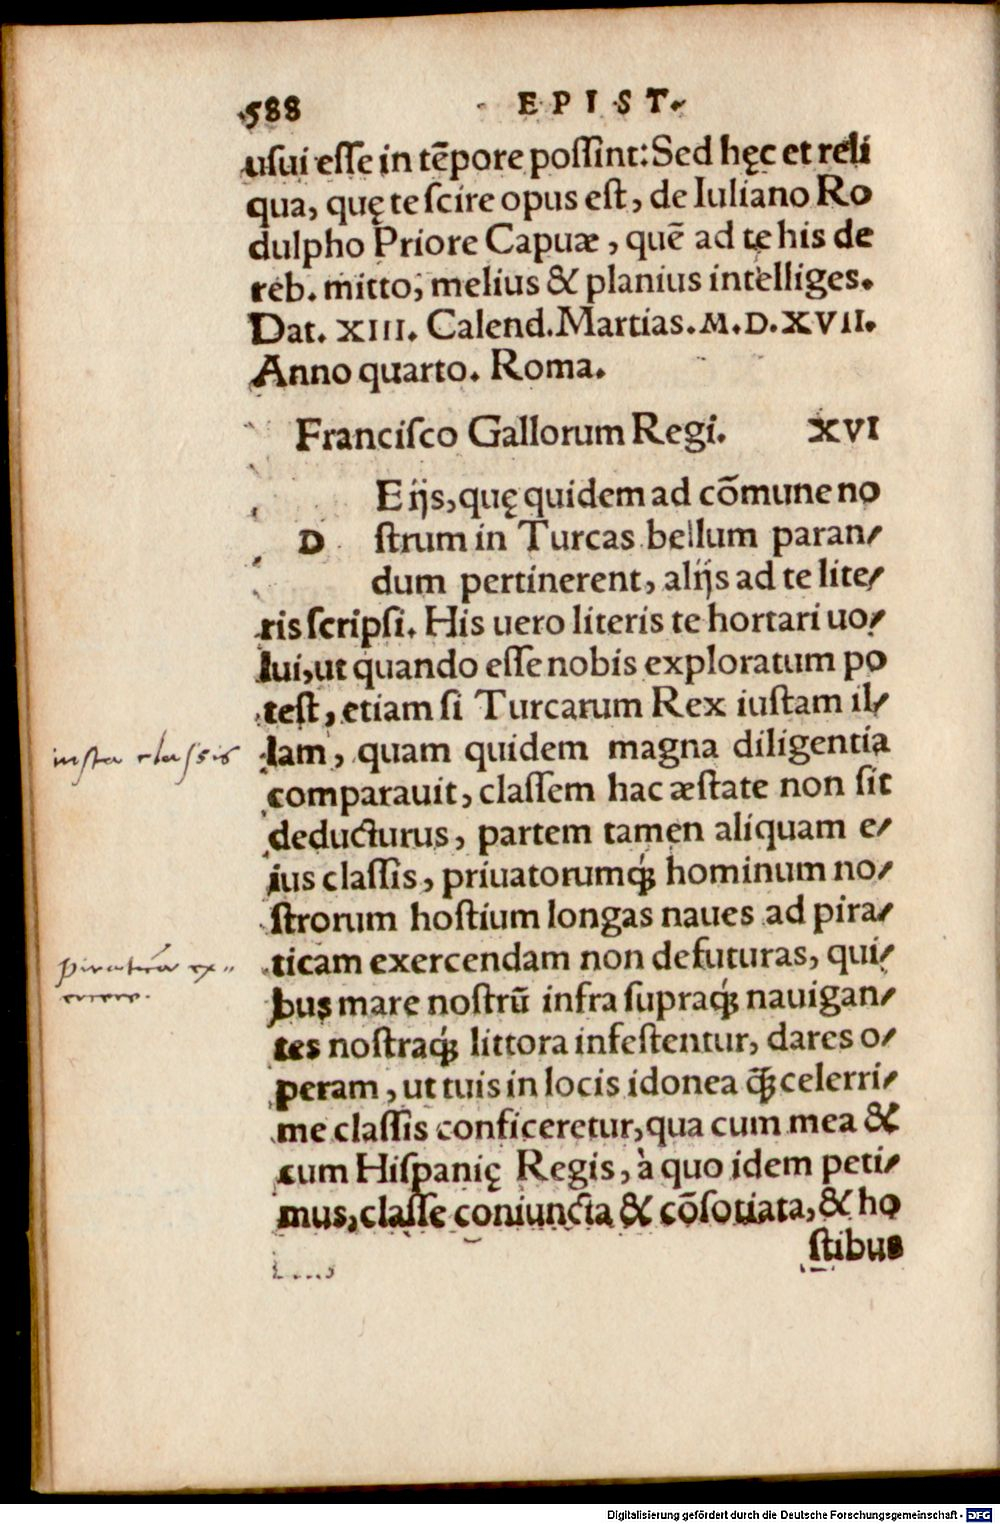 588 EPIST.
usui esse in tẽpore possint: Sed hęc et reli
qua, quę te scire opus est, de Iuliano Ro
dulpho Priore Capuæ, quẽ ad te his de
reb. mitto, melius & planius intelliges.
Dat. XIII. Calend. Martias. M.D.XVII.
Anno quarto. Roma.
Francisco Gallorum Regi. XVI
D E ijs, quę quidem ad cõmune no
strum in Turcas bellum paran/
dum pertinerent, alijs ad te lite/
ris scripsi. His uero literis te hortari uo/
lui, ut quando esse nobis exploratum po
test, etiam si Turcarum Rex iustam il/
iusta classis
lam, quam quidem magna diligentia
comparauit, classem hac æstate non sit
deducturus, partem tamen aliquam e/
ius classis, priuatorumq́; hominum no/
strorum hostium longas naues ad pira/
piraticā ex〃
ercere.
ticam exercendam non defuturas, qui/
bus mare nostrũ infra supraq́; nauigan/
tes nostraq́; littora infestentur, dares o/
peram, ut tuis in locis idonea q̃; celerri/
me classis conficeretur, qua cum mea &
cum Hispanię Regis, à quo idem peti/
mus, classe coniuncta & cõsotiata, & ho
stibus
Digitalisierung gefördert durch die Deutsche Forschungsgemeinschaft - DFG